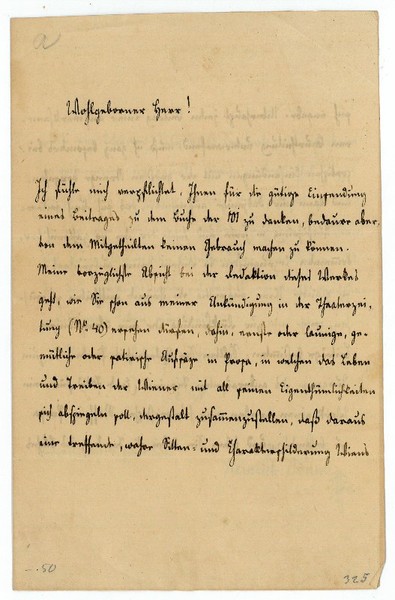 a
Wohlgeborner Herr!
Ich fühle mich verpflichtet, Ihnen für die gütige Einsendung
eines Beitrages zu dem Buche der 101 zu danken, bedaure aber,
von dem Mitgetheilten keinen Gebrauch machen zu können.
Meine vorzüglichste Absicht bei der Redaktion dieses Werkes
geht, wie Sie schon aus meiner Ankündigung in der Theaterzei-
tung (No. 40) ersehen dürften, dahin, ernste oder launige, ge-
müthliche oder satirische Aufsäze in Prosa, in welchen das Leben
und Treiben der Wiener mit all seinen Eigenthümlichkeiten
sich abspiegeln soll, dergestalt zusammenzustellen, daß daraus
eine treffende, wahre Sitten- und Charakterschilderung Wiens
-.50
325